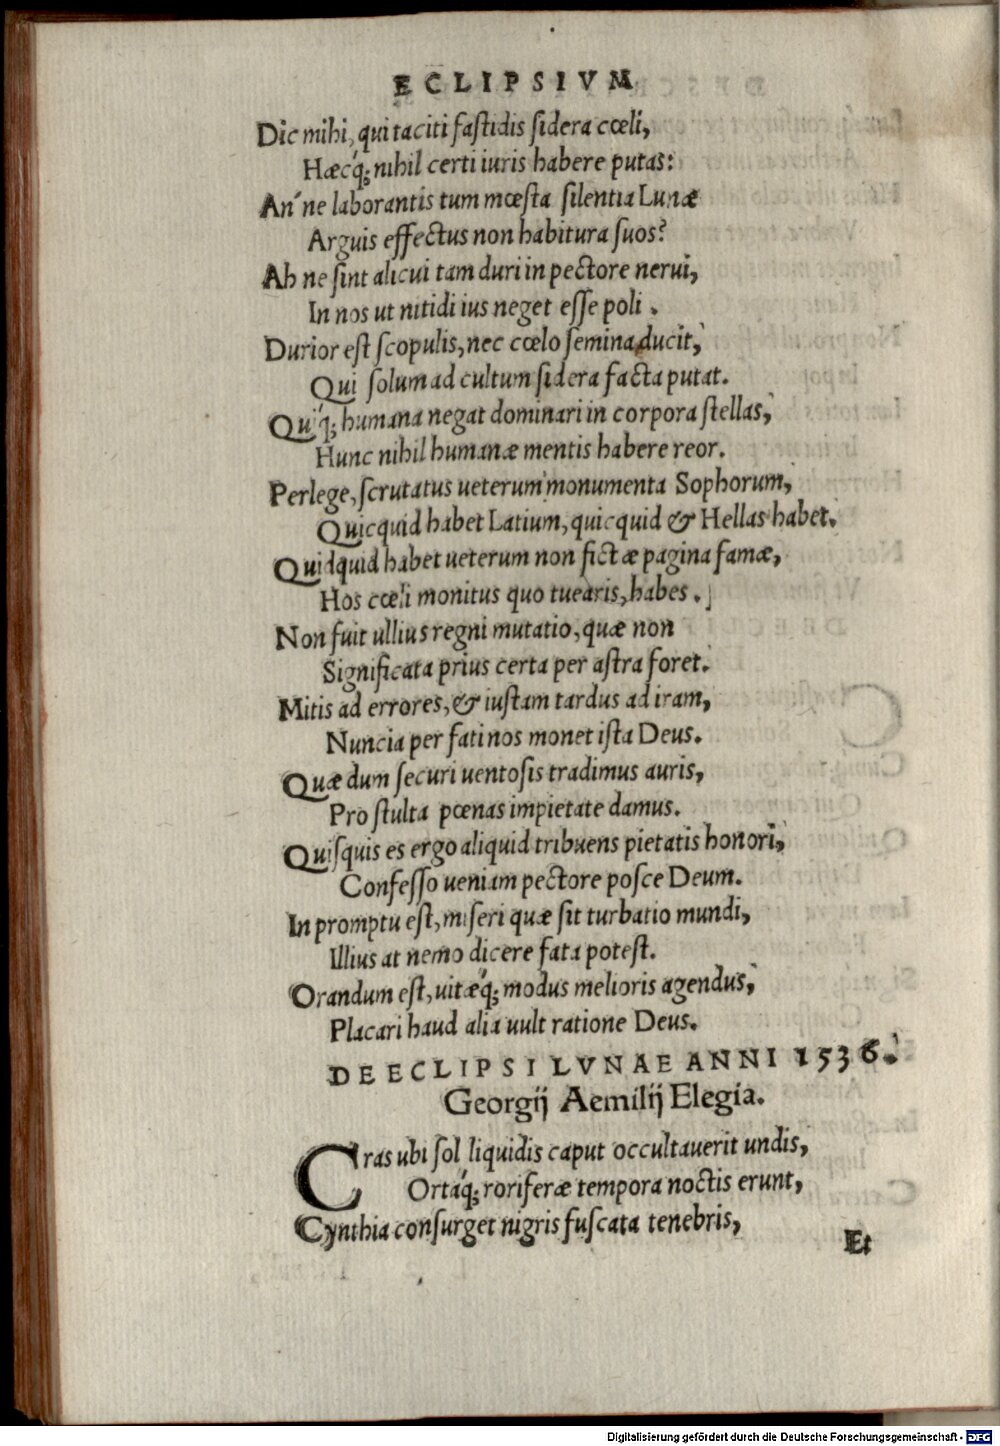 ECLIPSIVM
Dic mihi, qui taciti fastidis sidera cœli,
Hæcq́; nihil certi iuris habere putas:
An' ne laborantis tum mœsta silentia Lunæ
Arguis effectus non habitura suos?
Ah ne sint alicui tam duri in pectore nerui,
In nos ut nitidi ius neget esse poli.
Durior est scopulis, nec cœlo semina ducit,
Qui solum ad cultum sidera facta putat.
Qui'q́; humana negat dominari in corpora stellas,
Hunc nihil humanæ mentis habere reor.
Perlege, scrutatus ueterum monumenta Sophorum,
Quicquid habet Latium, quicquid & Hellas habet.
Quidquid habet ueterum non fictæ pagina famæ,
Hos cœli monitus quo tuearis, habes.
Non fuit ullius regni mutatio, quæ non
Significata prius certa per astra foret.
Mitis ad errores, & iustam tardus ad iram,
Nuncia per fati nos monet ista Deus.
Quæ dum securi uentosis tradimus auris,
Pro stulta pœnas impietate damus.
Quisquis es ergo aliquid tribuens pietatis honori,
Confesso ueniam pectore posce Deum.
In promptu est, miseri quæ sit turbatio mundi,
Illius at nemo dicere fata potest.
Orandum est, uitæq́; modus melioris agendus,
Placari haud alia uult ratione Deus.
DE ECLIPSI LVNAE ANNI 1536.
Georgij Aemilij Elegia.
Cras ubi sol liquidis caput occultauerit undis,
Ortaq́; roriferæ tempora noctis erunt,
Cynthia consurget nigris fuscata tenebris,
Et
Digitalisierung gefördert durch die Deutsche Forschungsgemeinschaft - DFG